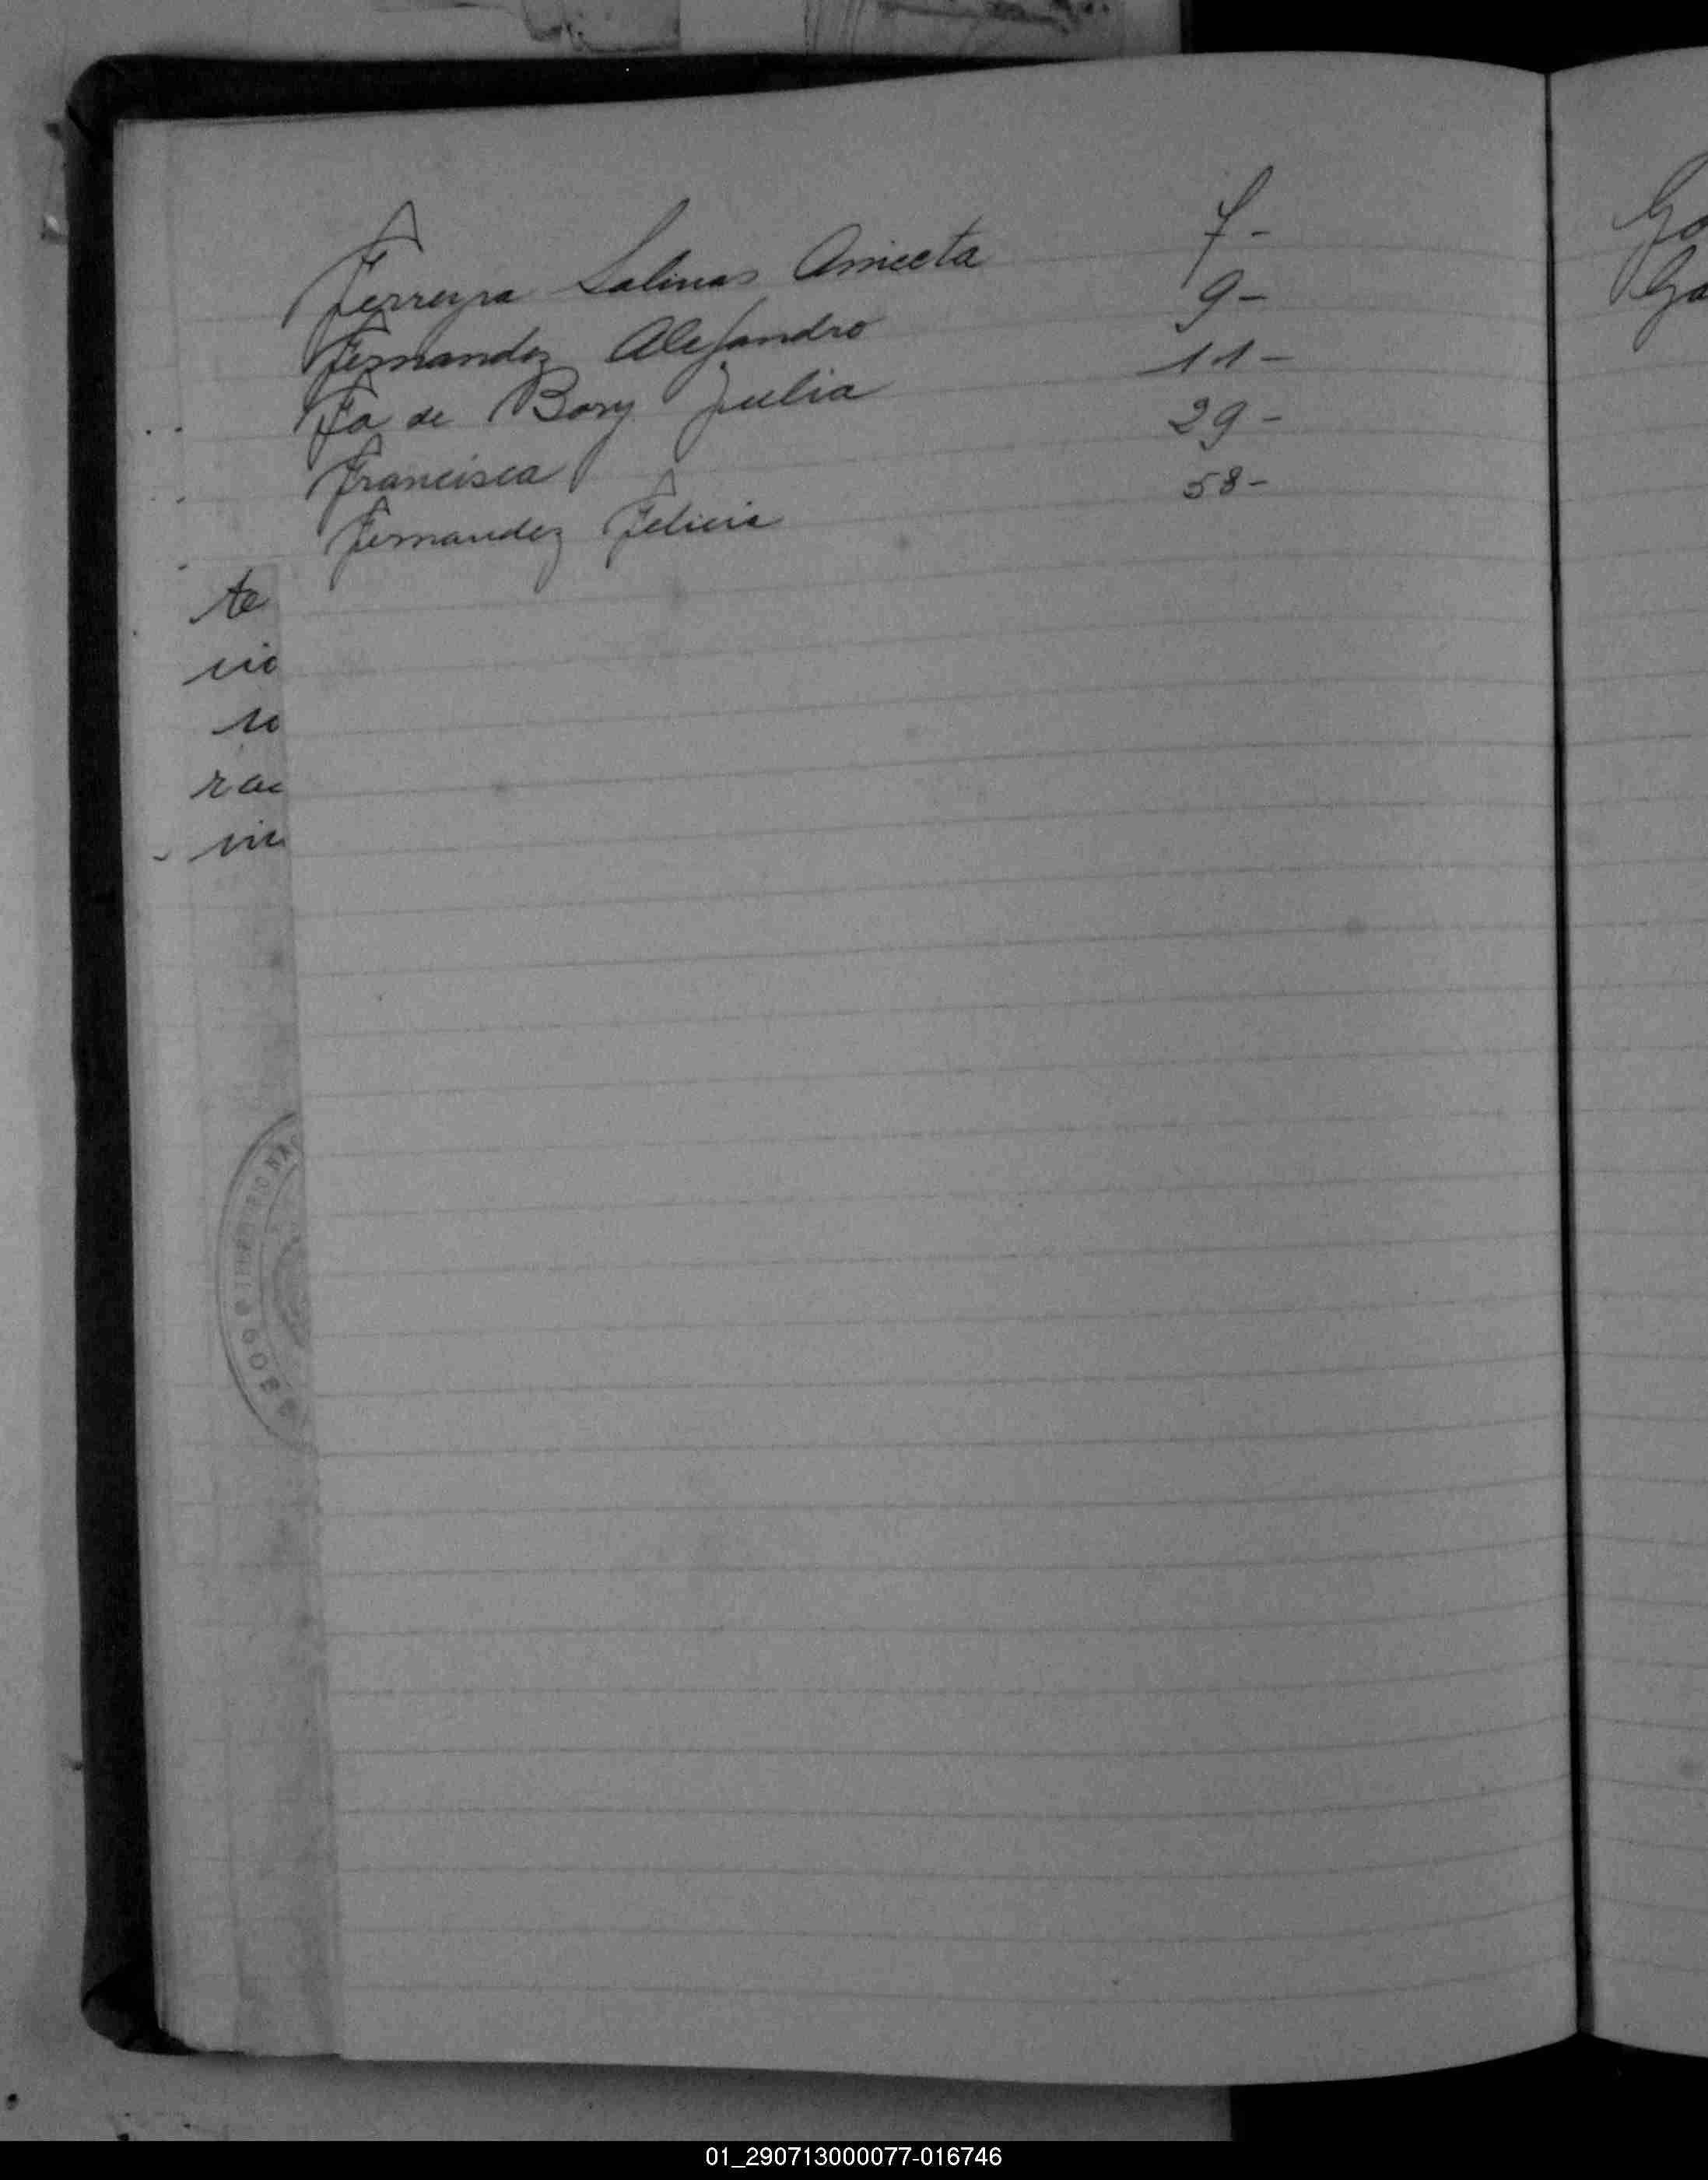 Ferreyra Salinas Aniceta 7-
Fernandez Alejandro 9-
Fa de Bory Julia 11-
Francisca 29-
Fernandez Felicia 58-
te
cio
so
rac
vin
Go
Ga
GOBE
01_290713000077-016746